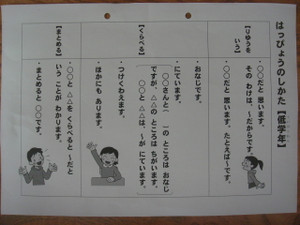 はっぴょうのしかた【低学年】
【りゆうを
いう】
・○○だと 思います。
その わけは、～だからです。
・○○だと 思います。たとえば～です。
【くらべる】
・おなじです。
・にています。
○○さんと 一の ところは おなじ
ですが、△△の ところは ちがいます。
○○と △△は、～が にています。
・つけくわえます。
・ほかにも あります。
【まとめる】
・○○と △△を くらべると ～だと
いう ことが わかります。
・まとめると ○○です。